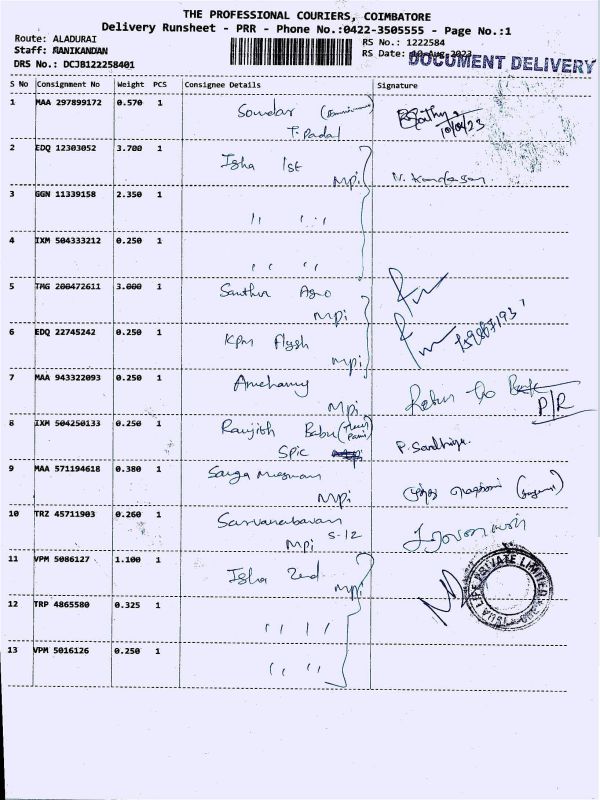 THE PROFESSIONAL COURIERS, COIMBATORE
Delivery Runsheet - PRR - Phone No.:0422-3505555 - Page No.:1
Route: ALADURAI
RS No.: 1222584
Staff: MANIKANDAN
RS Date: 10-Aug-2023
DOCUMENT DELIVERY
DRS No.: DCJB122258401
S No Consignment No Weight PCS Consignee Details Signature
1 MAA 297899172 0.570 1 Soundar
T.Padal
10/08/23
2 EDQ 12303052 3.700 1 Isha 1st
Mpi N. Kandasan
3 GGN 11339158 2.350 1 " "
4 IXM 504333212 0.250 1 " "
5 TMG 200472611 3.000 1 Santhir Agro
Mpi
6 EDQ 22745242 0.250 1 KPM
Mpi
7 MAA 943322093 0.250 1
Mpi Return to
P/R
8 IXM 504250133 0.250 1 Ranjith Babu
Spic P. Sandhiya
9 MAA 571194618 0.380 1
Mpi
10 TRZ 45711903 0.260 1 Sarvanabavan
Mpi S-12
11 VPM 5086127 1.100 1 Isha 2nd
Mpi
12 TRP 4865580 0.325 1 " "
13 VPM 5016126 0.250 1 " "